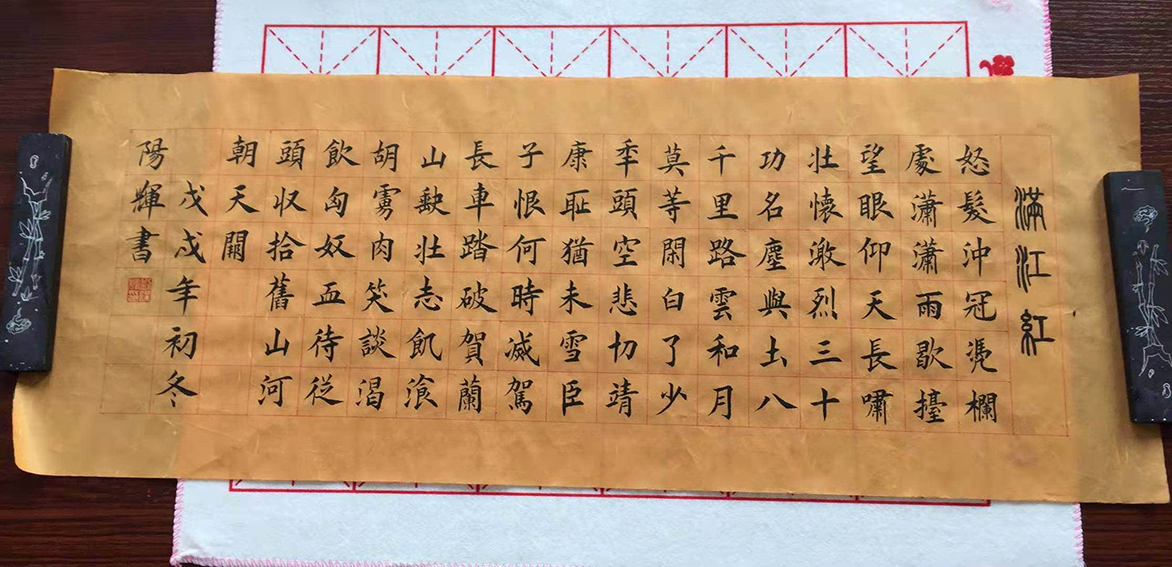 滿江紅
怒髮沖冠凴欄
處瀟瀟雨歇擡
望眼仰天長嘯
壯懷激烈三十
功名塵與土八
千里路雲和月
莫等閑白了少
秊頭空悲切靖
康耻猶未雪臣
子恨何時滅駕
長車踏破賀蘭
山缺壯志飢飡
胡虜肉笑談渴
飲匈奴血待従
頭収拾舊山河
朝天闕
戊戌年初冬
陽輝書